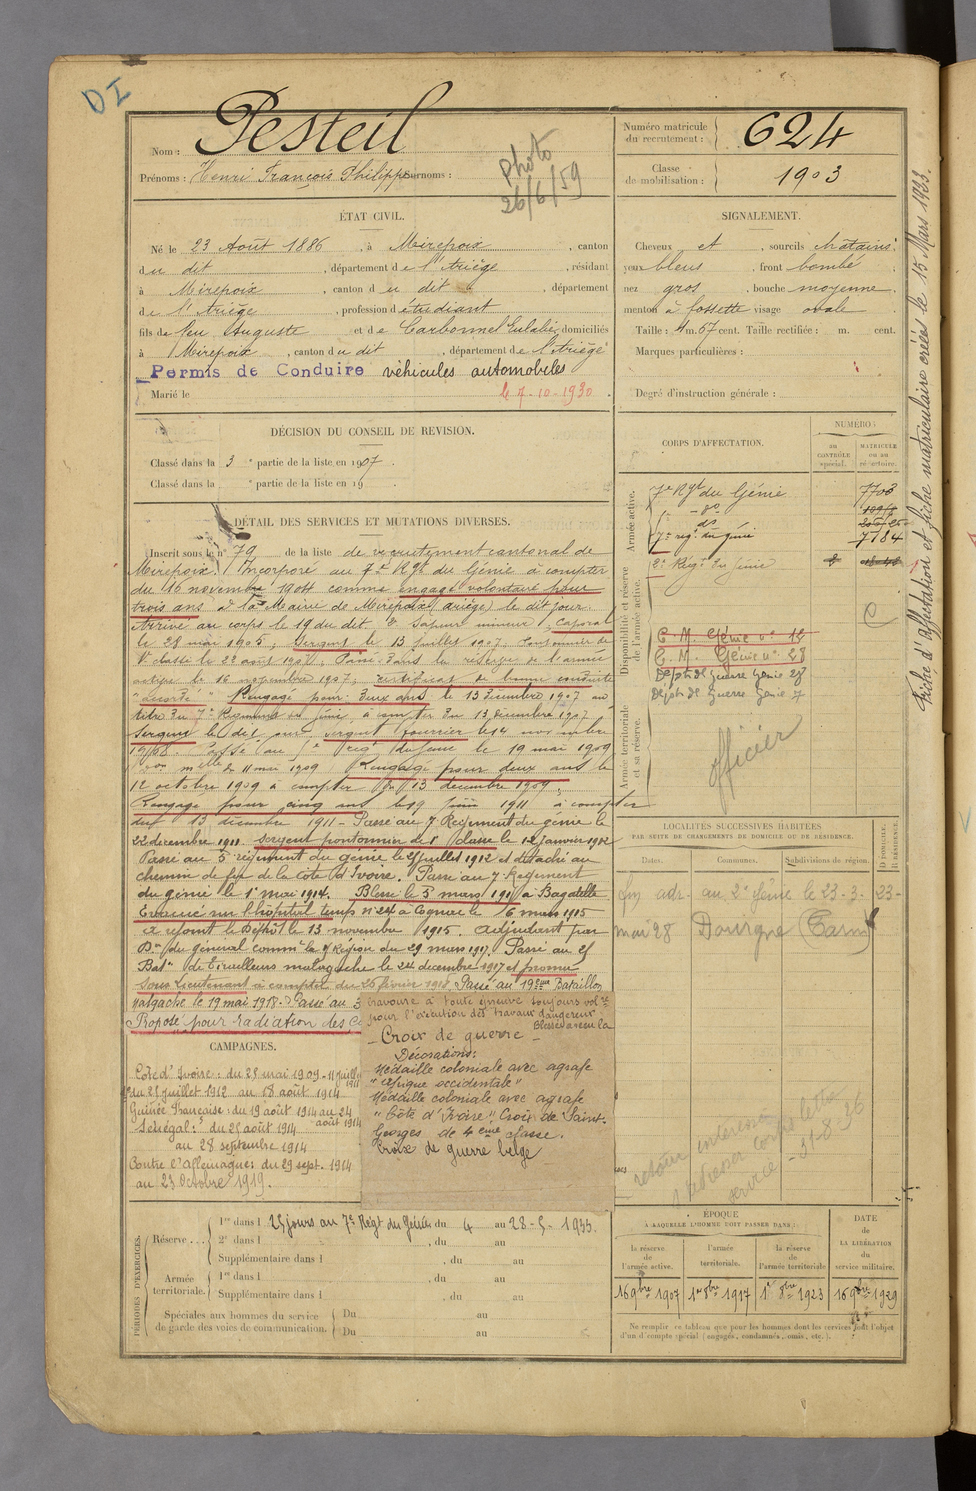 DI
Nom : Pesteil
Prénoms : Henri François Philippe Surnoms :
photo
26/6/59
Numéro matricule du recrutement : 624
Classe de mobilisation : 1903
ÉTAT CIVIL.
Né le 23 Août 1886, à Mirepoix, canton
du dit, département de l'Ariège, résidant
à Mirepoix, canton du dit, département
de l'Ariège, profession d'étudiant
fils de feu Auguste et de Carbonnel Eulalie, domiciliés
à Mirepoix, canton du dit, département de l'Ariège
Permis de Conduire véhicules automobiles
Marié le
le 7-10-1930.
SIGNALEMENT.
Cheveux et, sourcils châtains.
yeux bleus, front bombé
nez gros, bouche moyenne
menton à fossette visage ovale
Taille : 1m. 67 cent. Taille rectifiée : m. cent.
Marques particulières :
Degré d'instruction générale :
Fiche d'affectation et fiche matriculaire créées le 15 Mars 1933.
DÉCISION DU CONSEIL DE REVISION.
Classé dans la 3e partie de la liste en 1907.
Classé dans la e partie de la liste en 19
DÉTAIL DES SERVICES ET MUTATIONS DIVERSES.
Inscrit sous le n° 79 de la liste de recrutement cantonal de
Mirepoix. Incorporé au 7e Rgt du Génie à compter
du 16 novembre 1904 comme engagé volontaire pour
trois ans à la Mairie de Mirepoix (Ariège) le dit jour.
Arrivé au corps le 19 du dit. Sapeur mineur, Caporal
le 28 mai 1905, Sergent le 13 juillet 1907,
1e classe le 22 août 1907, Passé dans la réserve de l'armée
active le 16 novembre 1907, certificat de bonne conduite
"accordé" Rengagé pour deux ans le 13 décembre 1907 au
titre du 7e Régiment du Génie, à compter du 13 décembre 1907
Sergent le dit jour, sergent fourrier le 14 novembre
1908. Passé au regt du Génie le 19 mai 1909
mlle du 11 mai 1909 Rengagé pour deux ans le
12 octobre 1909 à compter du 13 décembre 1909,
Rengagé pour cinq ans le 19 juin 1911 à compter
du 13 décembre 1911 - Passé au 7 Régiment du génie le
22 décembre 1911. Sergent pontonnier de 1e classe le 12 janvier 1912
Passé au 5 régiment du génie le 25 juillet 1912 et détaché au
chemin de fer de la Côte d'Ivoire. Passé au 7 Régiment
du génie le 1er mai 1914. Blessé le 3 mars 1915 à Bagatelle
Evacué sur l'hôpital temps n° 24 à Cognac le 6 mars 1915
a rejoint le Dépôt le 13 novembre 1915. Adjudant par
Don du général commt la Région du 29 mars 1917. Passé au 21
Baton de Tirailleurs malgache le 24 décembre 1917 et promu
Sous Lieutenant à compter du 25 février 1918, Passé au 19ème Bataillon
Malgache le 19 mai 1918. Passé au 3
Proposé pour radiation des
bravoure à toute épreuve toujours volre
pour l'exécution des travaux dangereux
Blessé
- Croix de guerre -
Décorations:
Médaille coloniale avec agrafe
"Afrique occidentale"
Médaille coloniale avec agrafe
"Côte d'Ivoire" Croix de Saint-
Georges de 4ème classe.
Croix de guerre belge
CAMPAGNES.
Côte d'Ivoire : du 25 mai 1909 - 11 juillet 1911
du 25 juillet 1912 au 18 août 1914
Guinée Française : du 19 août 1914 au 24 août 1914
Sénégal : du 25 août 1914
au 28 septembre 1914
Contre l'Allemagne : du 29 sept. 1914
au 23 octobre 1919.
CORPS D'AFFECTATION.
NUMÉROS
AU CONTRÔLE spécial.
MATRICULE ou au répertoire.
Armée active.
7e Rgt du Génie 7703
- do
do
7e reg. du génie 7784
Disponibilité et réserve de l'armée active.
2e Régt du génie
C. M. Génie n° 18
C. M. Génie n° 28
Dépôt de Guerre Génie 28
Dépôt de Guerre Génie 7
C
Armée territoriale et sa réserve.
officier
LOCALITÉS SUCCESSIVES HABITÉES
PAR SUITE DE CHANGEMENTS DE DOMICILE OU DE RÉSIDENCE.
Dates. Communes. Subdivisions de région. D DOMICILE. R RÉSIDENCE.
au 2e génie le 23-3-23-
mai 28 Dourgne (Tarn)
retour
service
-31-8-36
PÉRIODES D'EXERCICES.
Réserve...
1re dans l 25 jours au 7e Régt du Génie du 4 au 28-5-1933.
2e dans l , du au
Supplémentaire dans l , du au
Armée territoriale.
1re dans l , du au
Supplémentaire dans l , du au
Spéciales aux hommes du service de garde des voies de communication.
Du au
Du au
ÉPOQUE
À LAQUELLE L'HOMME DOIT PASSER DANS :
la réserve de l'armée active.
l'armée territoriale.
la réserve de l'armée territoriale
DATE de LA LIBÉRATION du service militaire.
16 9bre 1907 1er 8bre 1917 1er 8bre 1923 16 9bre 1929
Ne remplir ce tableau que pour les hommes dont les services font l'objet
d'un d'compte spécial (engagés, condamnés, omis, etc.).